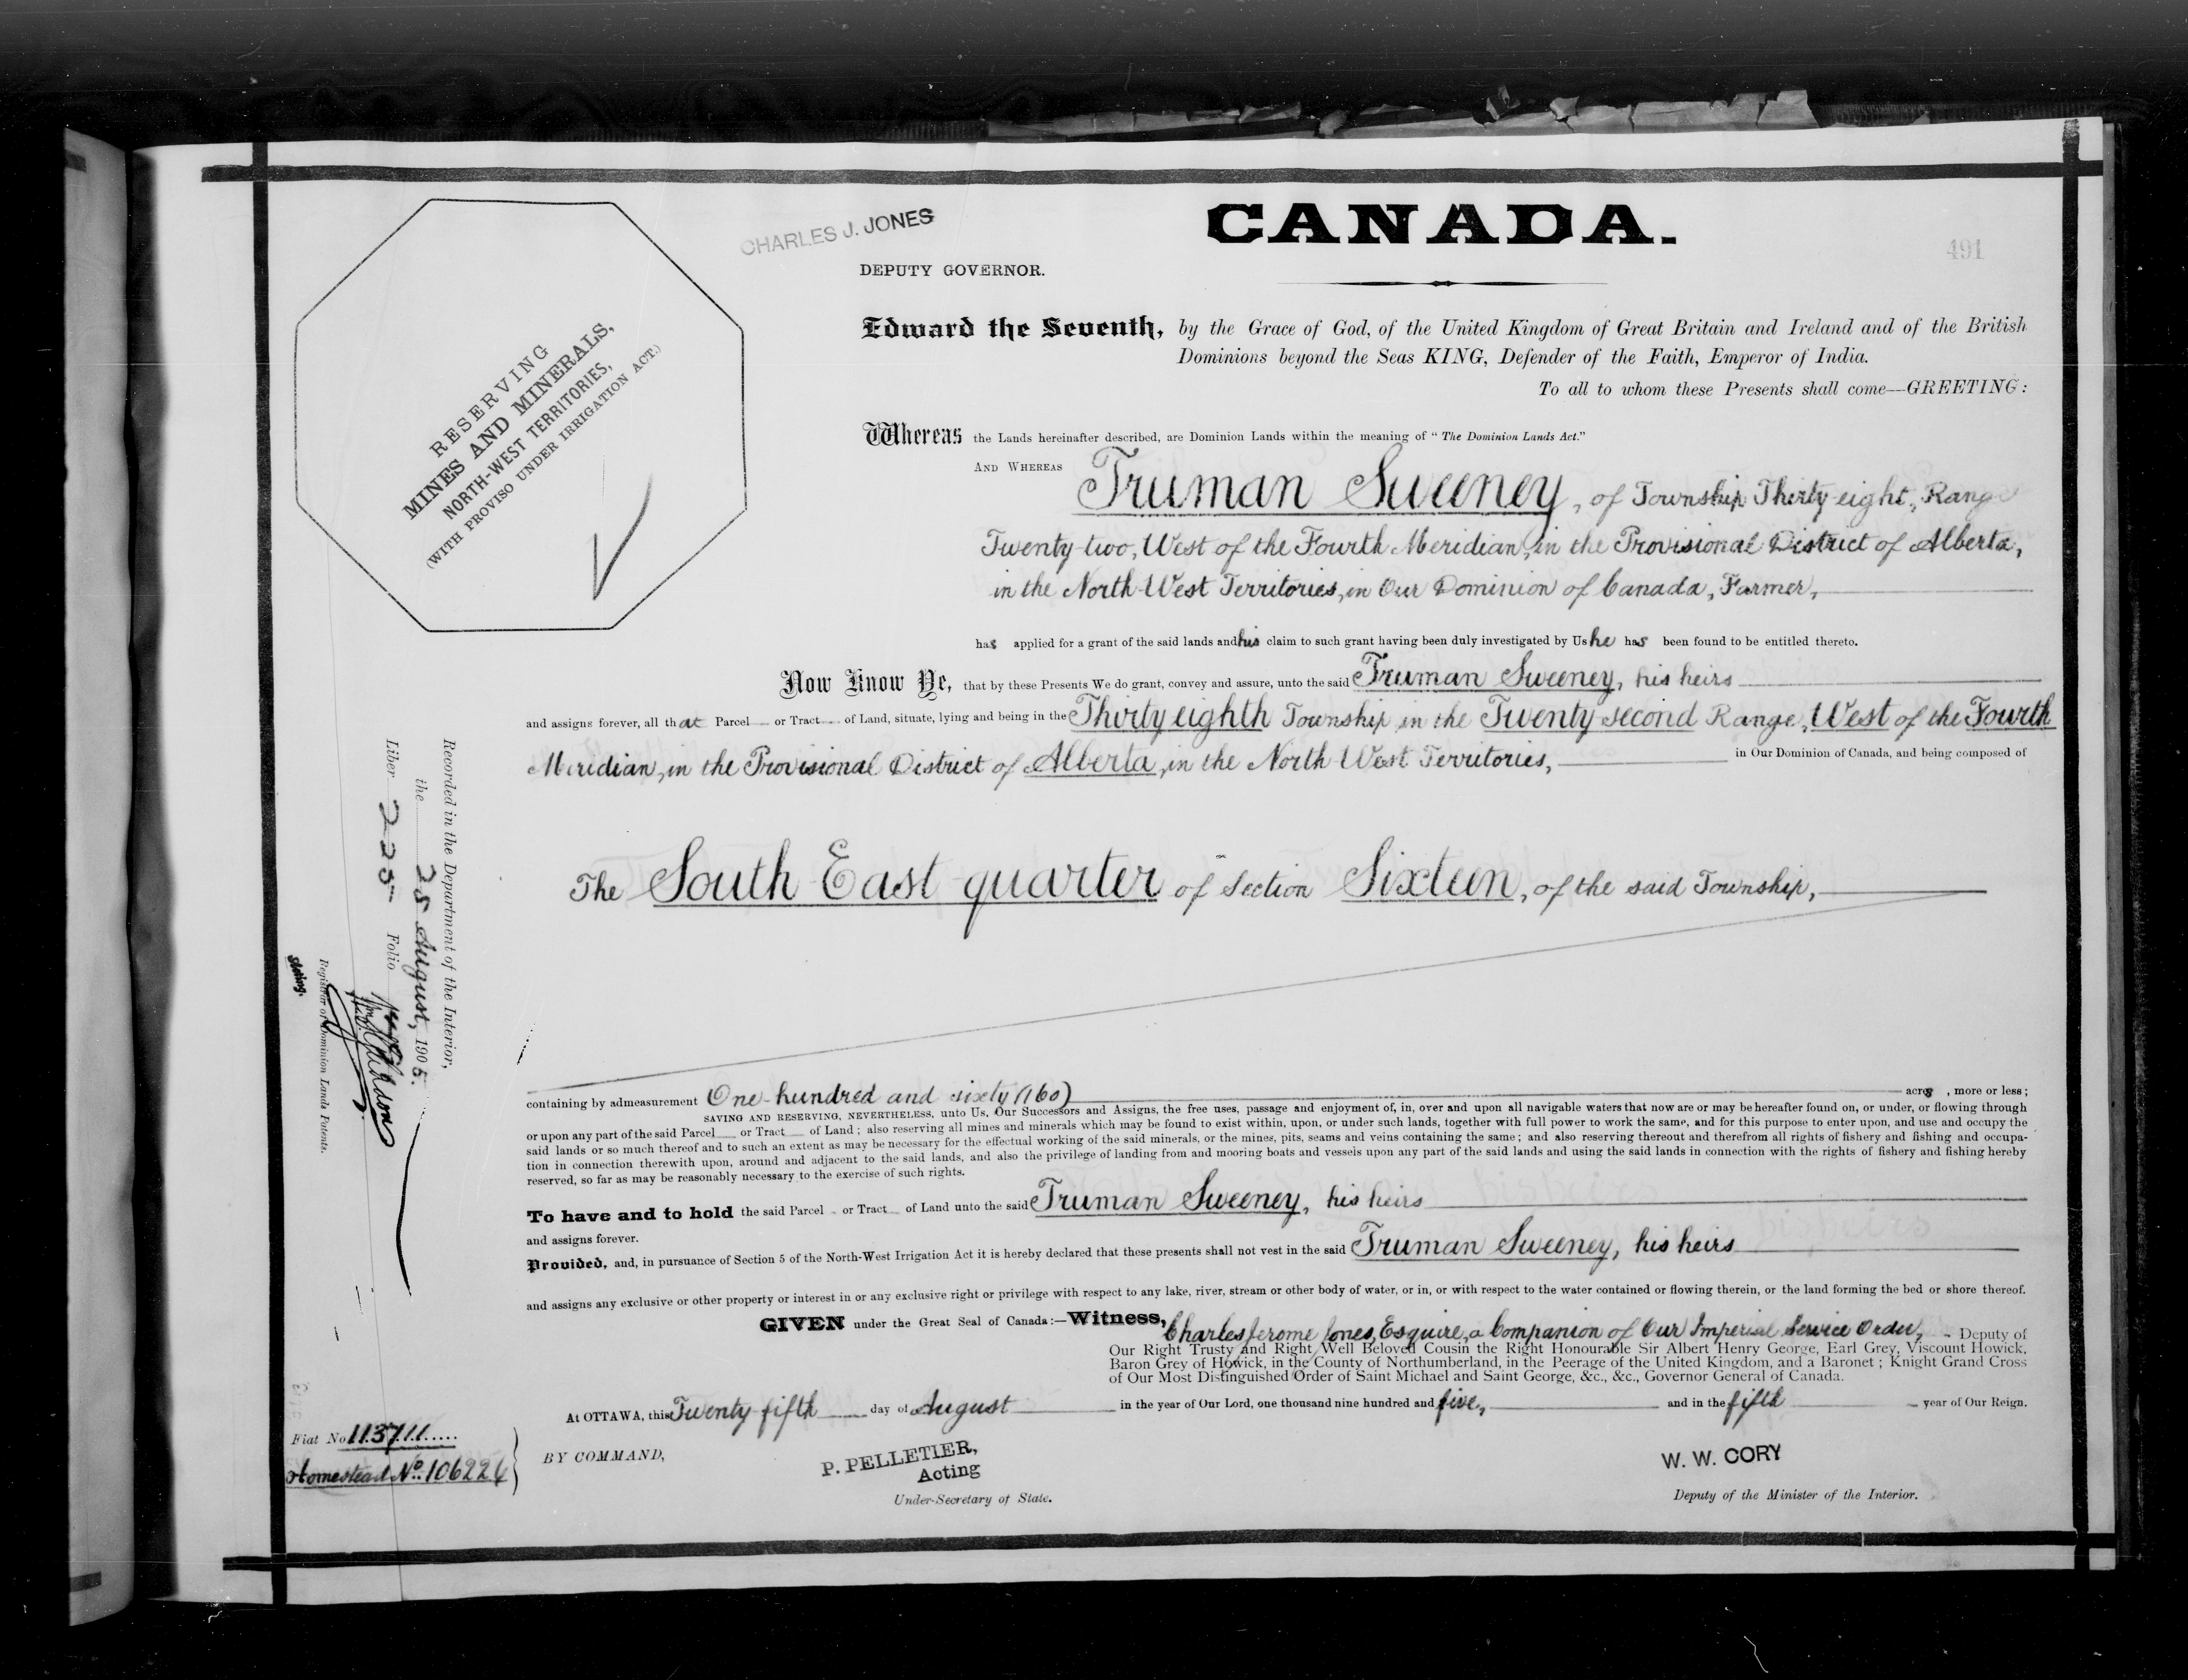 CHARLES J. JONES
CANADA.
491
DEPUTY GOVERNOR.
RESERVING
MINES AND MINERALS,
NORTH-WEST TERRITORIES,
(WITH PROVISO UNDER IRRIGATION ACT.)
Edward the Seventh, by the Grace of God, of the United Kingdom of Great Britain and Ireland and of the British
Dominions beyond the Seas KING, Defender of the Faith, Emperor of India.
To all to whom these Presents shall come—GREETING:
Whereas the Lands hereinafter described, are Dominion Lands within the meaning of "The Dominion Lands Act."
AND WHEREAS Truman Sweeney, of Township Thirty eight, Range
Twenty-two, West of the Fourth Meridian, in the Provisional District of Alberta,
in the North-West Territories, in Our Dominion of Canada, Farmer,
has applied for a grant of the said lands and his claim to such grant having been duly investigated by Us he has been found to be entitled thereto.
Now Know Ye, that by these Presents We do grant, convey and assure, unto the said Truman Sweeney, his heirs
and assigns forever, all that Parcel or Tract of Land, situate, lying and being in the Thirty eighth Township in the Twenty second Range, West of the Fourth
Meridian, in the Provisional District of Alberta, in the North West Territories, in Our Dominion of Canada, and being composed of
The South East quarter of Section Sixteen, of the said Township,
Recorded in the Department of the Interior,
the 25 August, 1905.
Liber 225 Folio
Registrar of Dominion Lands Patents.
containing by admeasurement One hundred and sixty (160) acres, more or less;
SAVING AND RESERVING, NEVERTHELESS, unto Us, Our Successors and Assigns, the free uses, passage and enjoyment of, in, over and upon all navigable waters that now are or may be hereafter found on, or under, or flowing through
or upon any part of the said Parcel or Tract of Land; also reserving all mines and minerals which may be found to exist within, upon, or under such lands, together with full power to work the same, and for this purpose to enter upon, and use and occupy the
said lands or so much thereof and to such an extent as may be necessary for the effectual working of the said minerals, or the mines, pits, seams and veins containing the same; and also reserving thereout and therefrom all rights of fishery and fishing and occupa-
tion in connection therewith upon, around and adjacent to the said lands, and also the privilege of landing from and mooring boats and vessels upon any part of the said lands and using the said lands in connection with the rights of fishery and fishing hereby
reserved, so far as may be reasonably necessary to the exercise of such rights.
To have and to hold the said Parcel or Tract of Land unto the said Truman Sweeney, his heirs
and assigns forever.
Provided, and, in pursuance of Section 5 of the North-West Irrigation Act it is hereby declared that these presents shall not vest in the said Truman Sweeney, his heirs
and assigns any exclusive or other property or interest in or any exclusive right or privilege with respect to any lake, river, stream or other body of water, or in, or with respect to the water contained or flowing therein, or the land forming the bed or shore thereof.
GIVEN under the Great Seal of Canada:—Witness, Charles Jerome Jones, Esquire, a Companion of Our Imperial Service Order, Deputy of
Our Right Trusty and Right Well Beloved Cousin the Right Honourable Sir Albert Henry George, Earl Grey, Viscount Howick,
Baron Grey of Howick, in the County of Northumberland, in the Peerage of the United Kingdom, and a Baronet; Knight Grand Cross
of Our Most Distinguished Order of Saint Michael and Saint George, &c., &c., Governor General of Canada.
At OTTAWA, this Twenty fifth day of August in the year of Our Lord, one thousand nine hundred and five, and in the fifth year of Our Reign.
Fiat No 113711
Homestead No. 106224
BY COMMAND,
P. PELLETIER,
Acting
Under-Secretary of State.
W. W. CORY
Deputy of the Minister of the Interior.